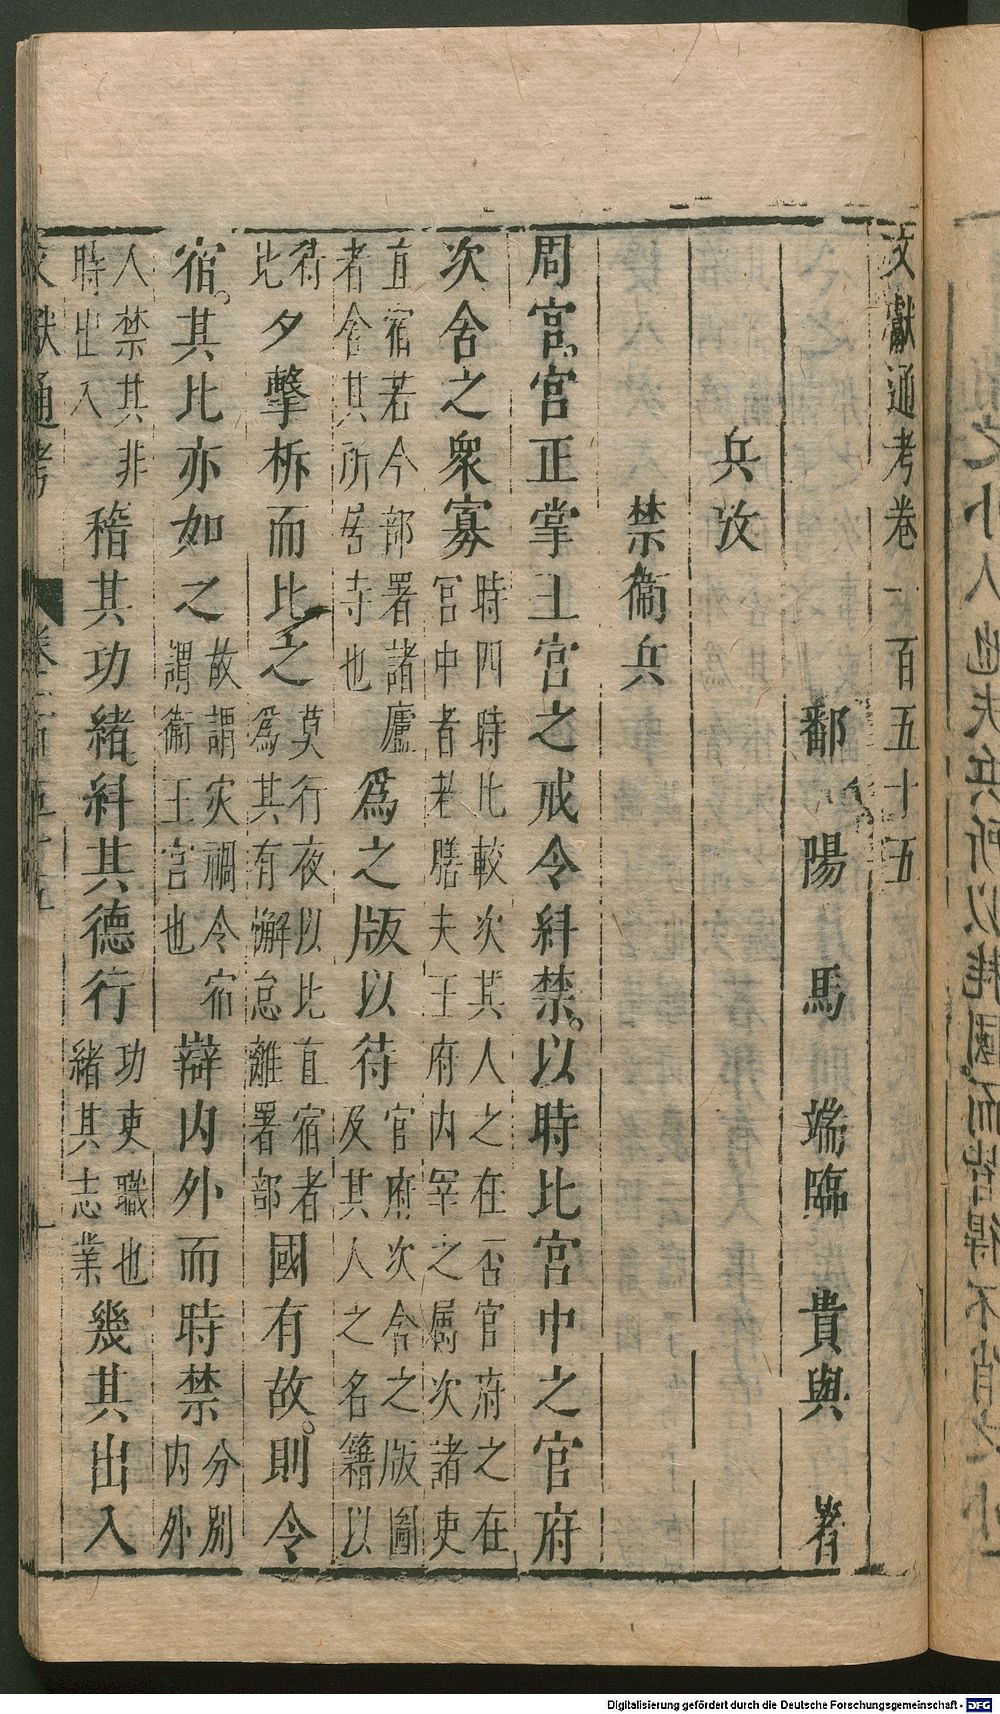 文獻通考卷一百五十五
鄱陽馬端臨貴與著
兵攷
禁衞兵
周官。宮正掌王宮之戒令糾禁。以時比宮中之官府
次舍之衆寡時四時比較次其人之在否官府之在宮中者若膳夫王府内宰之属次諸吏
直宿若今部署諸廬者舍其所居寺也爲之版以待官府次舍之版圖及其人之名籍以
待比夕擊柝而比之莫行夜以比直宿者爲其有懈怠離署部國有故。則令
宿。其比亦如之故謂灾禍令宿謂衞王宮也辯内外而時禁分别内外
人禁其非時出入稽其功緒。糾其德行功吏職也緒其志業幾其出入
文獻通考 卷一百五十五 一